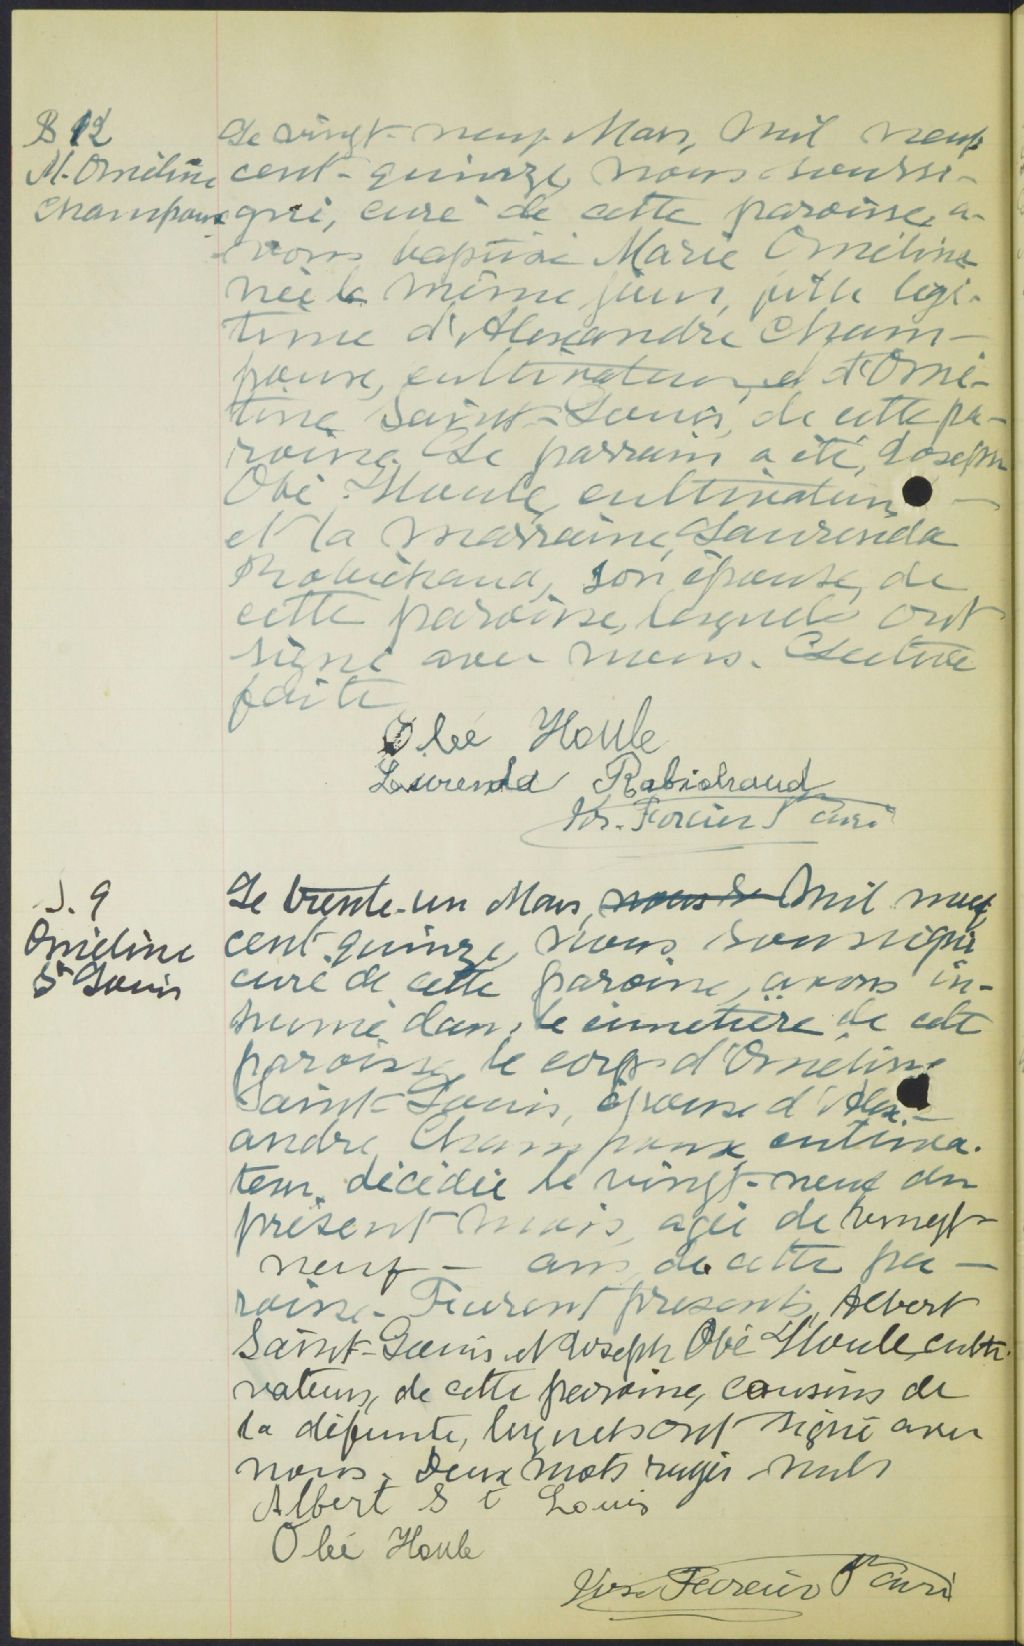 B 12
M. Orméline
Champoux
Le vingt-neuf Mars, Mil neuf
cent-quinze, nous soussi-
gné, curé de cette paroisse, a-
vons baptisé Marie Orméline
née le même jour, fille légi-
time d'Alexandre Cham-
poux, cultivateur, et d'Ormé-
line Saint-Louis, de cette pa-
roisse. Le parrain a été, Joseph
Obé Houle, cultivateur, -
et la marraine, Laurenda
Robichaud, son épouse, de
cette paroisse, lesquels ont
signé avec nous. Lecture
faite
Obée Houle
Laurenda Robichaud
Jos. Forcier Ptre Curé
S. 9
Orméline
St Louis
Le trente-un Mars, nous so Mil neuf
cent quinze, nous soussigné
curé de cette paroisse, avons in-
humé dans le cimetière de cette
paroisse, le corps d'Orméline
Saint-Louis, épouse d'Alex-
andre Champoux, cultiva-
teur, décédée le vingt-neuf du
présent mois, agée de vingt-
neuf - ans, de cette pa-
roisse. Furent présents, Albert
Saint-Louis et Joseph Obé Houle, culti-
vateurs, de cette paroisse, cousins de
la défunte, lesquels ont signé avec
nous. Deux mots rayés nuls
Albert St Louis
Obé Houle
Jos. Forcier Ptre Curé